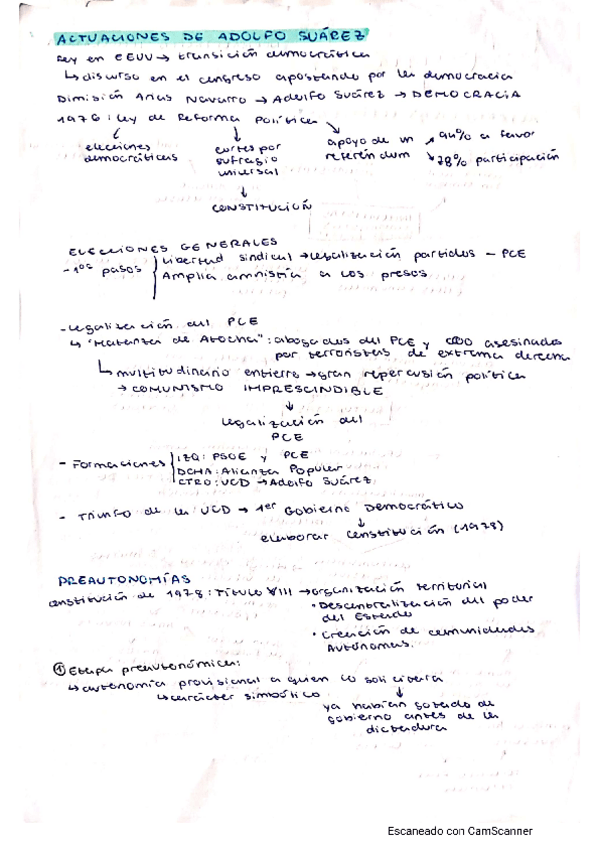 ACTUACIONES DE ADOLFO SUÁREZ
Rey en EEUU → transición democrática
↳ discurso en el congreso apostando por la democracia
Dimisión Arias Navarro → Adolfo Suárez → DEMOCRACIA
1976: Ley de Reforma Política
elecciones democráticas
cortes por sufragio universal
apoyo de un referéndum
94% a favor
78% participación
CONSTITUCIÓN
ELECCIONES GENERALES
- 1os pasos
Libertad sindical → legalización partidos - PCE
Amplia amnistía a los presos
- Legalización del PCE
↳ "Matanza de Atocha": abogados del PCE y CCOO asesinados
por terroristas de extrema derecha
↳ multitudinario entierro → gran repercusión política
→ COMUNISMO IMPRESCINDIBLE
↓
legalización del
PCE
- Formaciones
IZQ: PSOE y PCE
DCHA: Alianza Popular
CTRO: UCD → Adolfo Suárez
- Triunfo de la UCD → 1er Gobierno Democrático
↓
elaborar constitución (1978)
PREAUTONOMÍAS
constitución de 1978: Título VIII → organización territorial
• Descentralización del poder
del Estado
• Creación de comunidades
Autónomas.
① Etapa preautonómica:
↳ autonomía provisional a quien lo solicitara
↳ carácter simbólico
ya habían gozado de
gobierno antes de la
dictadura
Escaneado con CamScanner